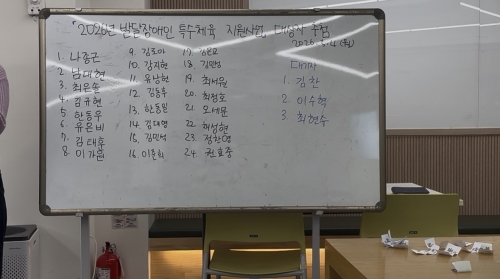 「2026년 발달장애인 특수체육 지원사업」 대상자 추첨
(월)
1. 나종근
2. 남대현
3. 최은솔
4. 김규현
5. 한동우
6. 유은비
7. 김태호
8. 이가윤
9. 김도아
10. 강지현
11. 유남현
12. 김동후
13. 한동일
14. 김태영
15. 김민석
16. 이훈희
17.
18. 김민성
19. 최서원
20. 최정호
21. 오세훈
22. 허성현
23. 정찬영
24. 권효중
대기자
1. 김찬
2. 이수혁
3. 최현수